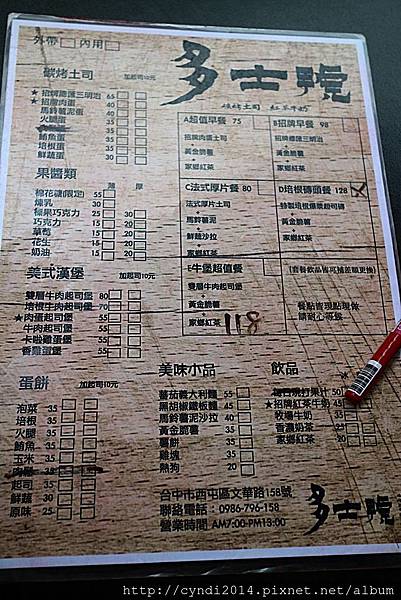 外帶 內用
多士號
碳烤土司 紅茶牛奶
碳烤土司 加起司10元
★招牌總匯三明治 65
★招牌肉蛋 40
馬鈴薯泥蛋 40
鮪魚蛋 40
火腿蛋 35
培根蛋 35
鮮蔬蛋 30
果醬類 薄 厚
棉花糖(限定) 55
煉乳 30
榛果巧克力 20 30
巧克力 15 20
草莓 15 20
花生 15 20
奶油 15 20
美式漢堡 加起司10元
雙層牛肉起司堡 80
培根牛肉起司堡 70
★肉蛋起司堡
牛肉起司堡
卡啦雞蛋堡
香雞蛋堡
蛋餅 加起司10元
泡菜 35
培根 35
火腿 35
鮪魚 35
玉米 35
起司 35
鮮蔬 30
原味 25
A超值早餐 75
招牌肉蛋土司
+
黃金脆薯
+
家鄉紅茶
B招牌早餐 98
招牌總匯三明治
+
黃金脆薯
+
家鄉紅茶
C法式厚片餐 80
法式厚片土司
+
馬鈴薯泥
+
鮮蔬沙拉
+
家鄉紅茶
D培根磚頭餐 128
特製培根爆漿起司磚
+
黃金脆薯
+
家鄉紅茶
E牛堡超值餐
雙層牛肉起司
+
黃金脆薯
+
家鄉紅茶
118
(套餐飲品皆可補差額更換)
餐點皆現點現做
請耐心等候
美味小品
蕃茄義大利麵 55
黑胡椒鐵板麵 45
馬鈴薯泥沙拉 45
黃金脆薯 35
薯餅
雞塊
熱狗 20
飲品
每日現打果汁 50
★招牌紅茶牛奶 45
牧場牛奶
香濃奶茶
家鄉紅茶
台中市西屯區文華路158號
聯絡電話：0986-796-158
營業時間 AM7:00-PM13:00
多士號
http://cyndi2014.pixnet.net/album